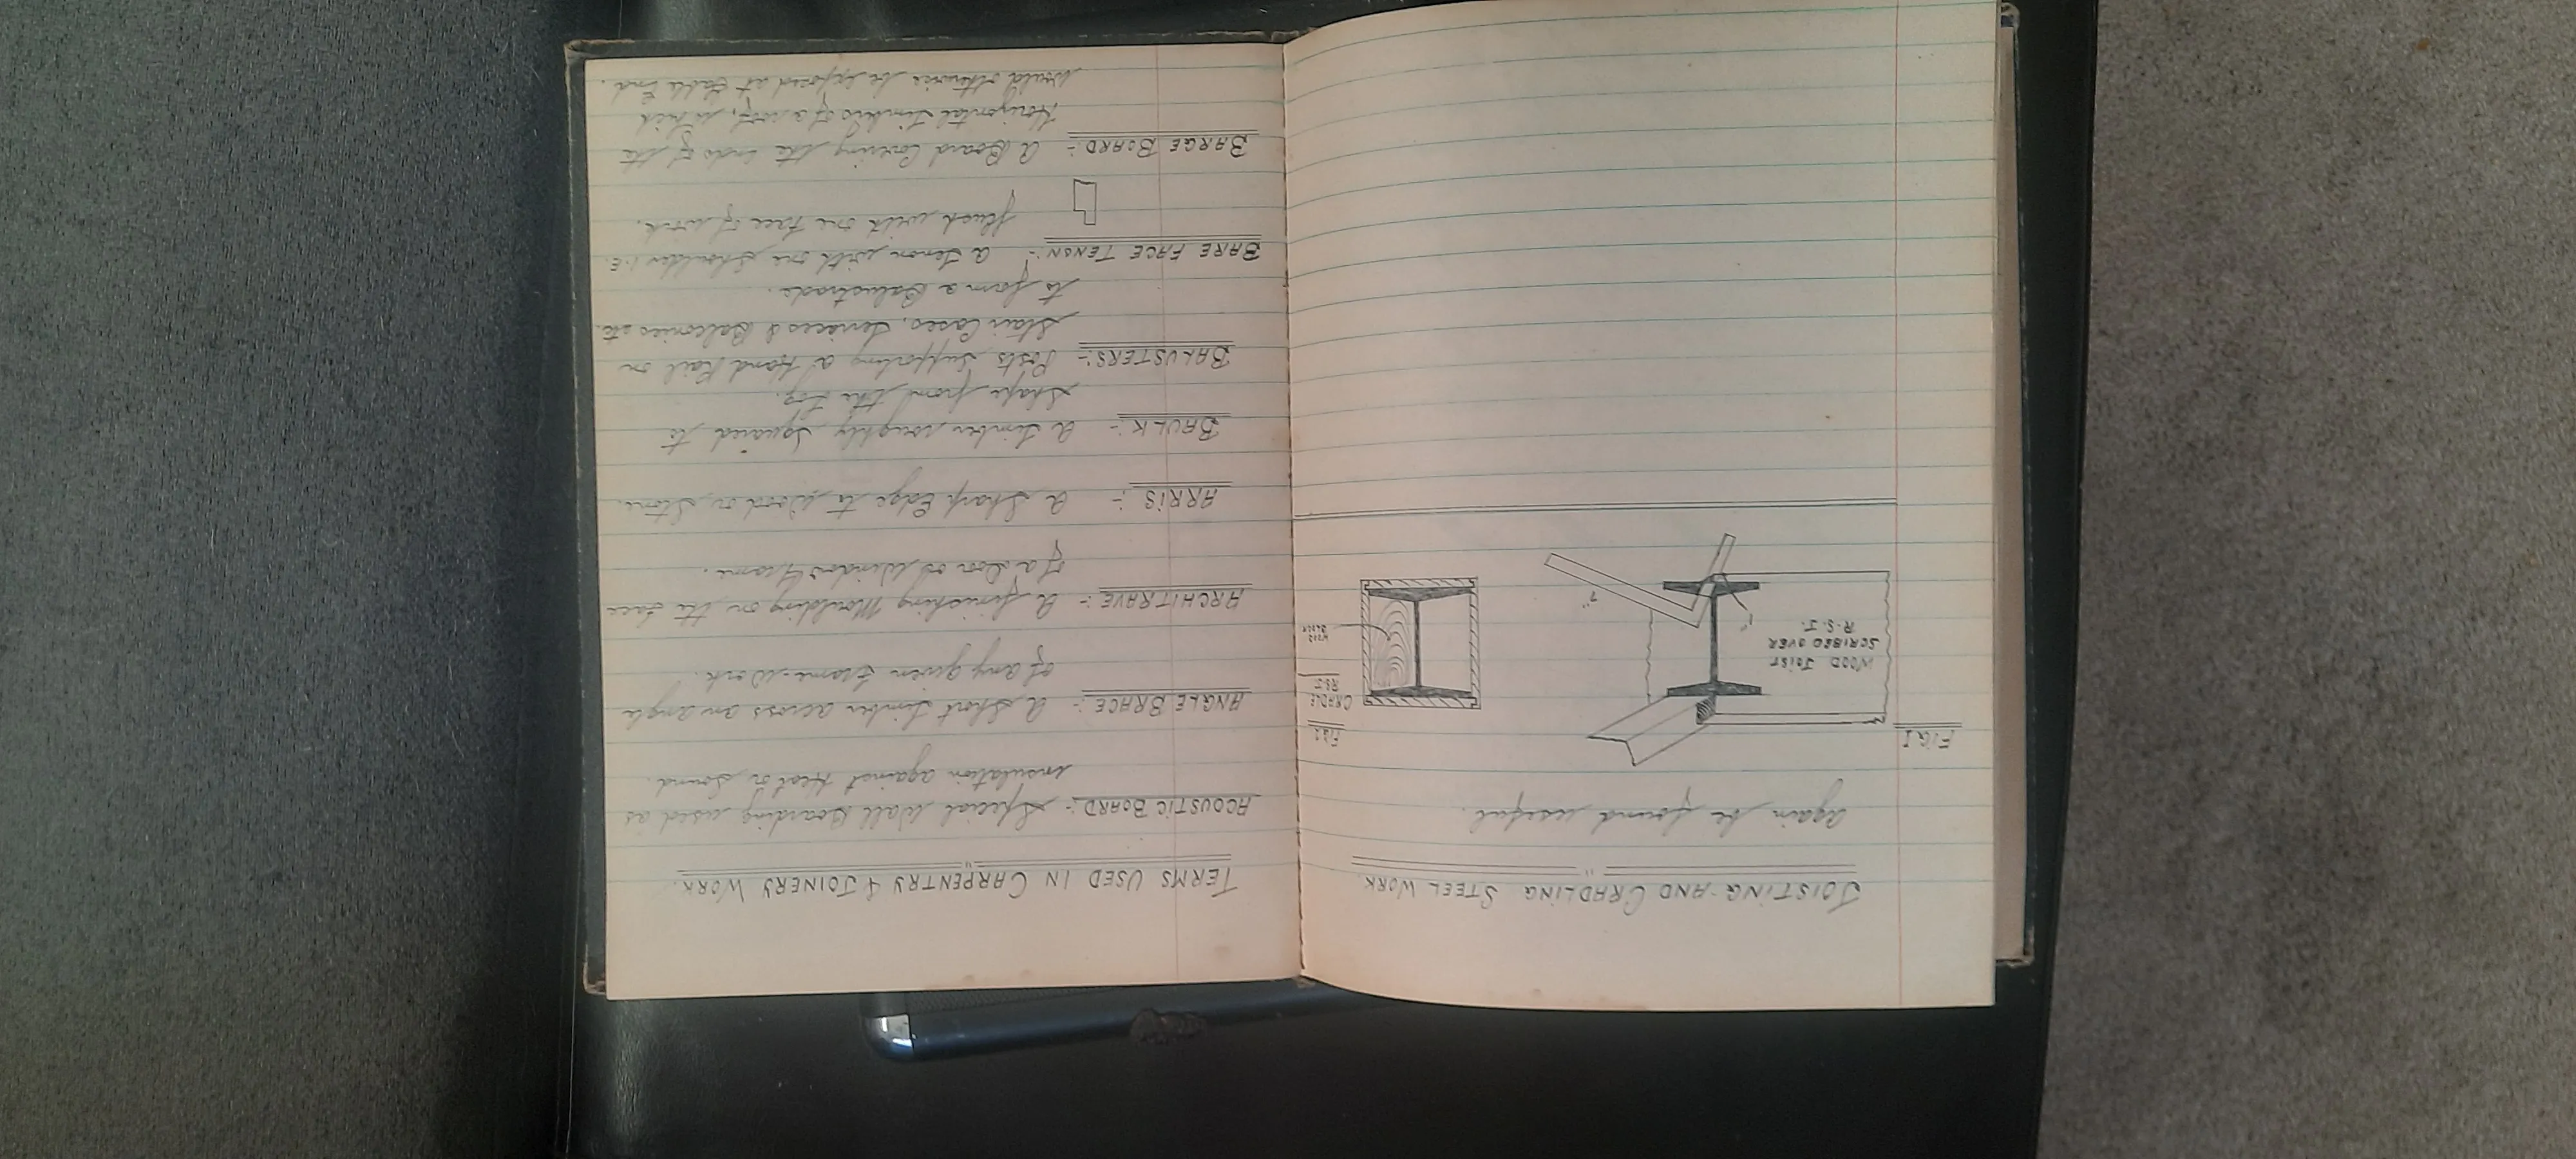 JOISTING AND CRADLING STEEL WORK.
again be found useful.
FIG I
WOOD JOIST
SCRIBED OVER
R.S.J.
1"
7"
FIG 2
CRADLE
R.S.J
WOOD
BLOCK
TERMS USED IN CARPENTRY & JOINERY WORK.
ACOUSTIC BOARD:- Special Wall Boarding used as
insulation against Heat or Sound.
ANGLE BRACE:- A Short timber across an angle
of any given Frame-Work.
ARCHITRAVE:- A finishing Moulding on the face
of a Door or Window Frame.
ARRIS:- A Sharp Edge to Wood or Stone.
BAULK:- A timber roughly Squared to
Shape from the Log.
BALUSTERS:- Posts Supporting a Hand Rail on
Stair Cases, Terraces & Balconies etc.
to form a Balustrade.
BARE FACE TENON:- A tenon with one shoulder i.e.
flush with one face of work.
BARGE BOARD:- A Board Covering the ends of the
Horizontal timbers of a roof, which
Would otherwise be exposed at Gable End.